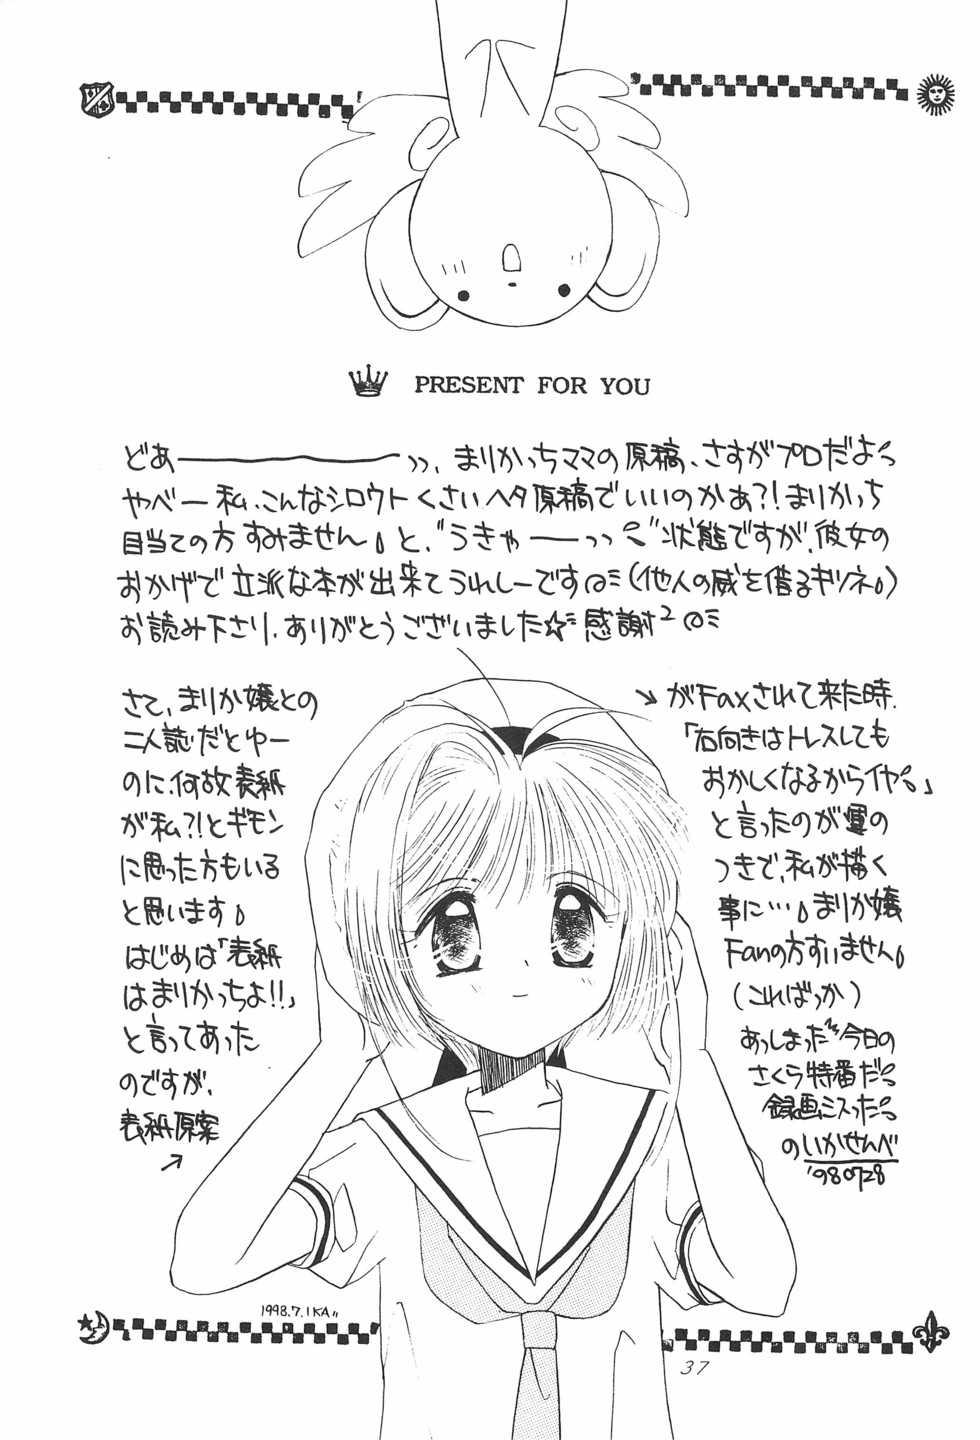 PRESENT FOR YOU
どあーーーーーーッッ、まりかっちママの原稿、さすがプロだよっ
やべー私、こんなシロウトくさいヘタ原稿でいいのかあ?!まりかっち
目当ての方すみません。と、"うきゃーーッッ"状態ですが、彼女の
おかげで立派な本が出来てうれしーです(他人の威を借るキツネ。)
お読み下さり、ありがとうございました☆感謝²
さて、まりか嬢との
二人誌だとゆー
のに、何故表紙
が私?!とギモン
に思った方もいる
と思います。
はじめは「表紙
はまりかっちよ!!」
と言ってあった
のですが、
表紙原案
→
→がFaxされて来た時、
「右向きはトレスしても
おかしくなるからイヤ。」
と言ったのが運の
つきで、私が描く
事に…。まりか嬢
Fanの方すいません。
(こればっか)
あっしまった"今日の
さくら特番だっ
録画ミスったっ
のいかせんべ
'980728
1998.7.IKA
37